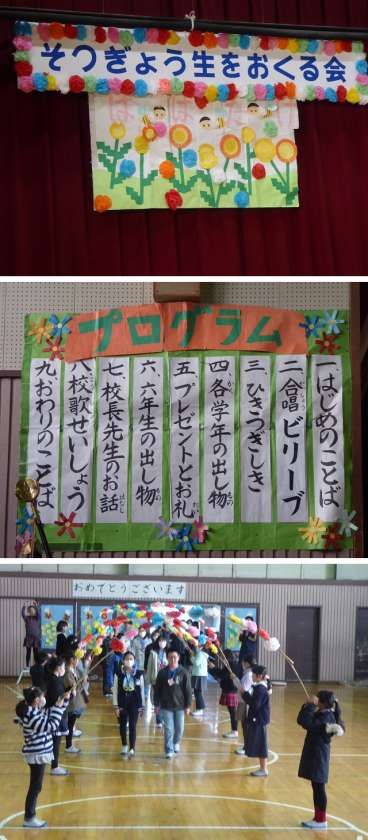 そつぎょう生をおくる会
プログラム
一、はじめのことば
二、合唱 ビリーブ
三、ひきつぎしき
四、各学年の出し物
五、プレゼントとお礼
六、六年生の出し物
七、校長先生のお話
八、校歌せいしょう
九、おわりのことば
おめでとうございます